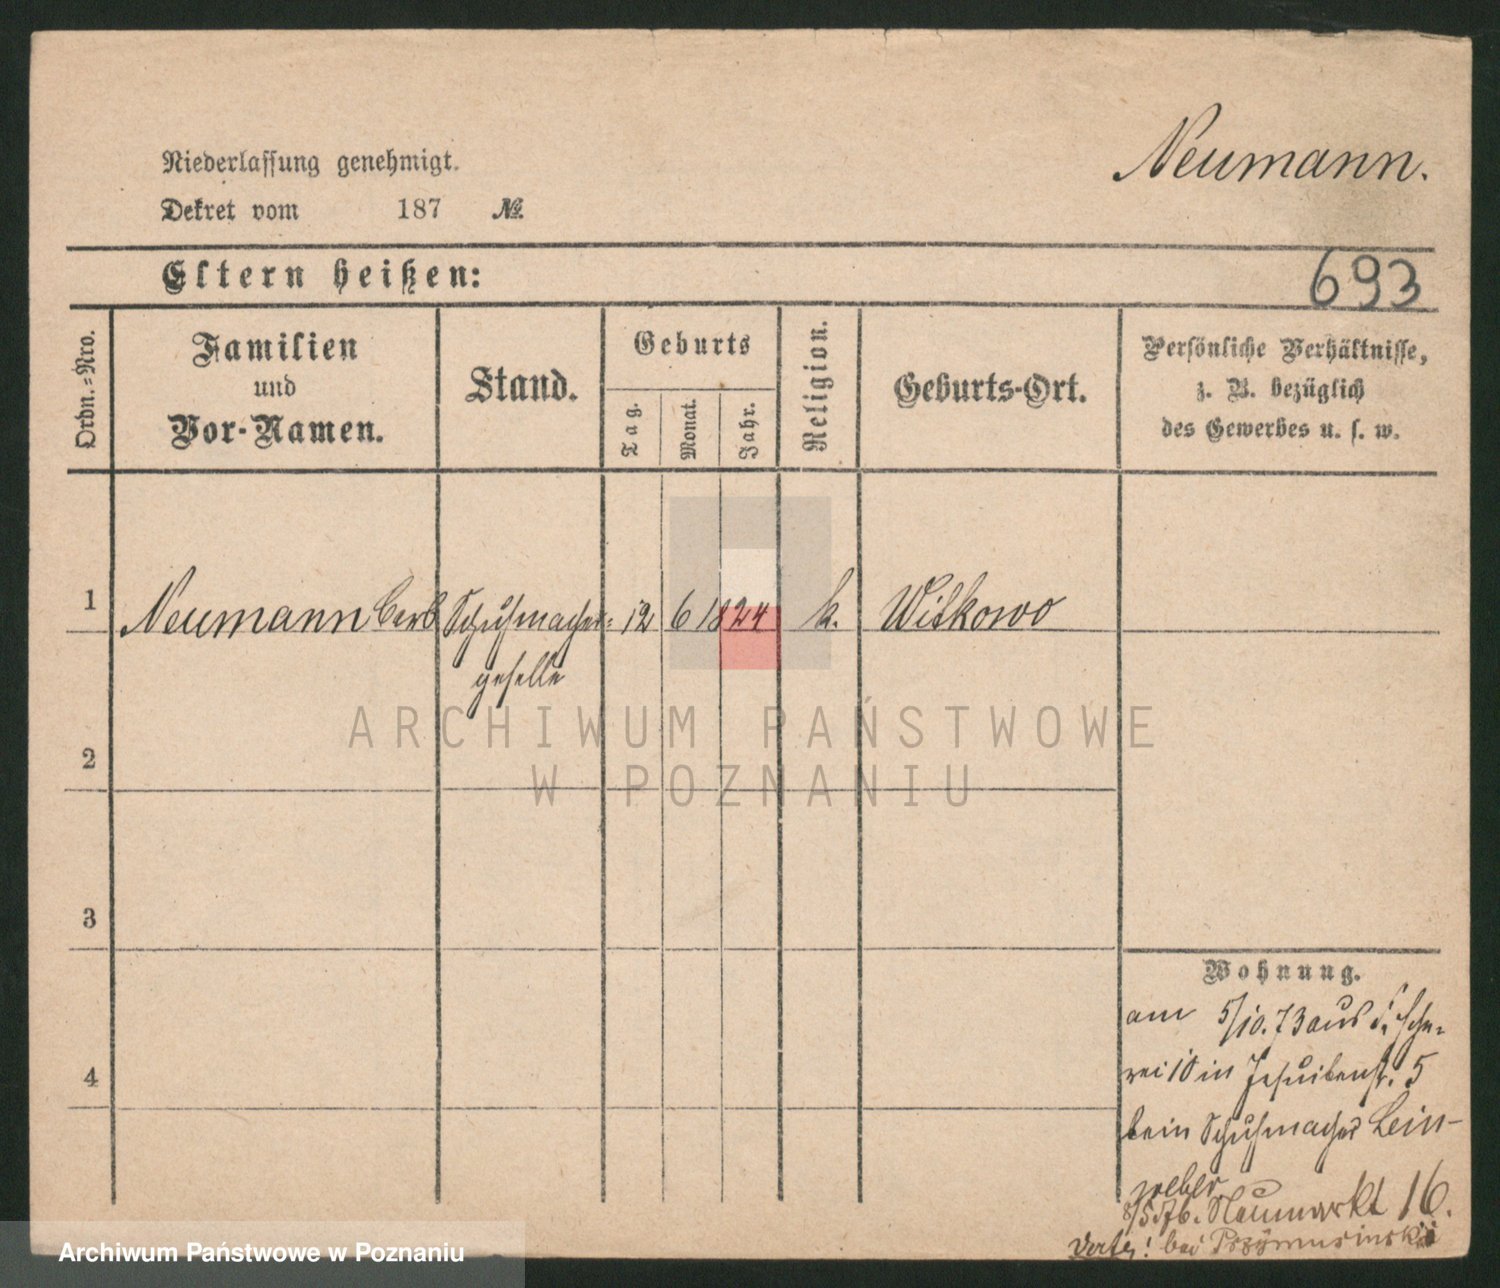 Neumann.
Niederlassung genehmigt.
Dekret vom 187 №
Eltern heißen:
693
Ordn.=Nro.
Familien
und
Vor-Namen.
Stand.
Geburts
Tag.
Monat.
Jahr.
Religion.
Geburts-Ort.
Persönliche Verhältnisse,
z. B. bezüglich
des Gewerbes u. s. w.
1 Neumann Carl Schuhmacher= 12 6 1824 k. Witkowo
geselle
2
3
4
Wohnung.
am 5/10.73 aus
10 in Jesuitenstr. 5
beim Schuhmacher Lein-
weber
8/5.76. Neumarkt 16.
bei Przymusinski
ARCHIWUM PAŃSTWOWE
W POZNANIU
Archiwum Państwowe w Poznaniu